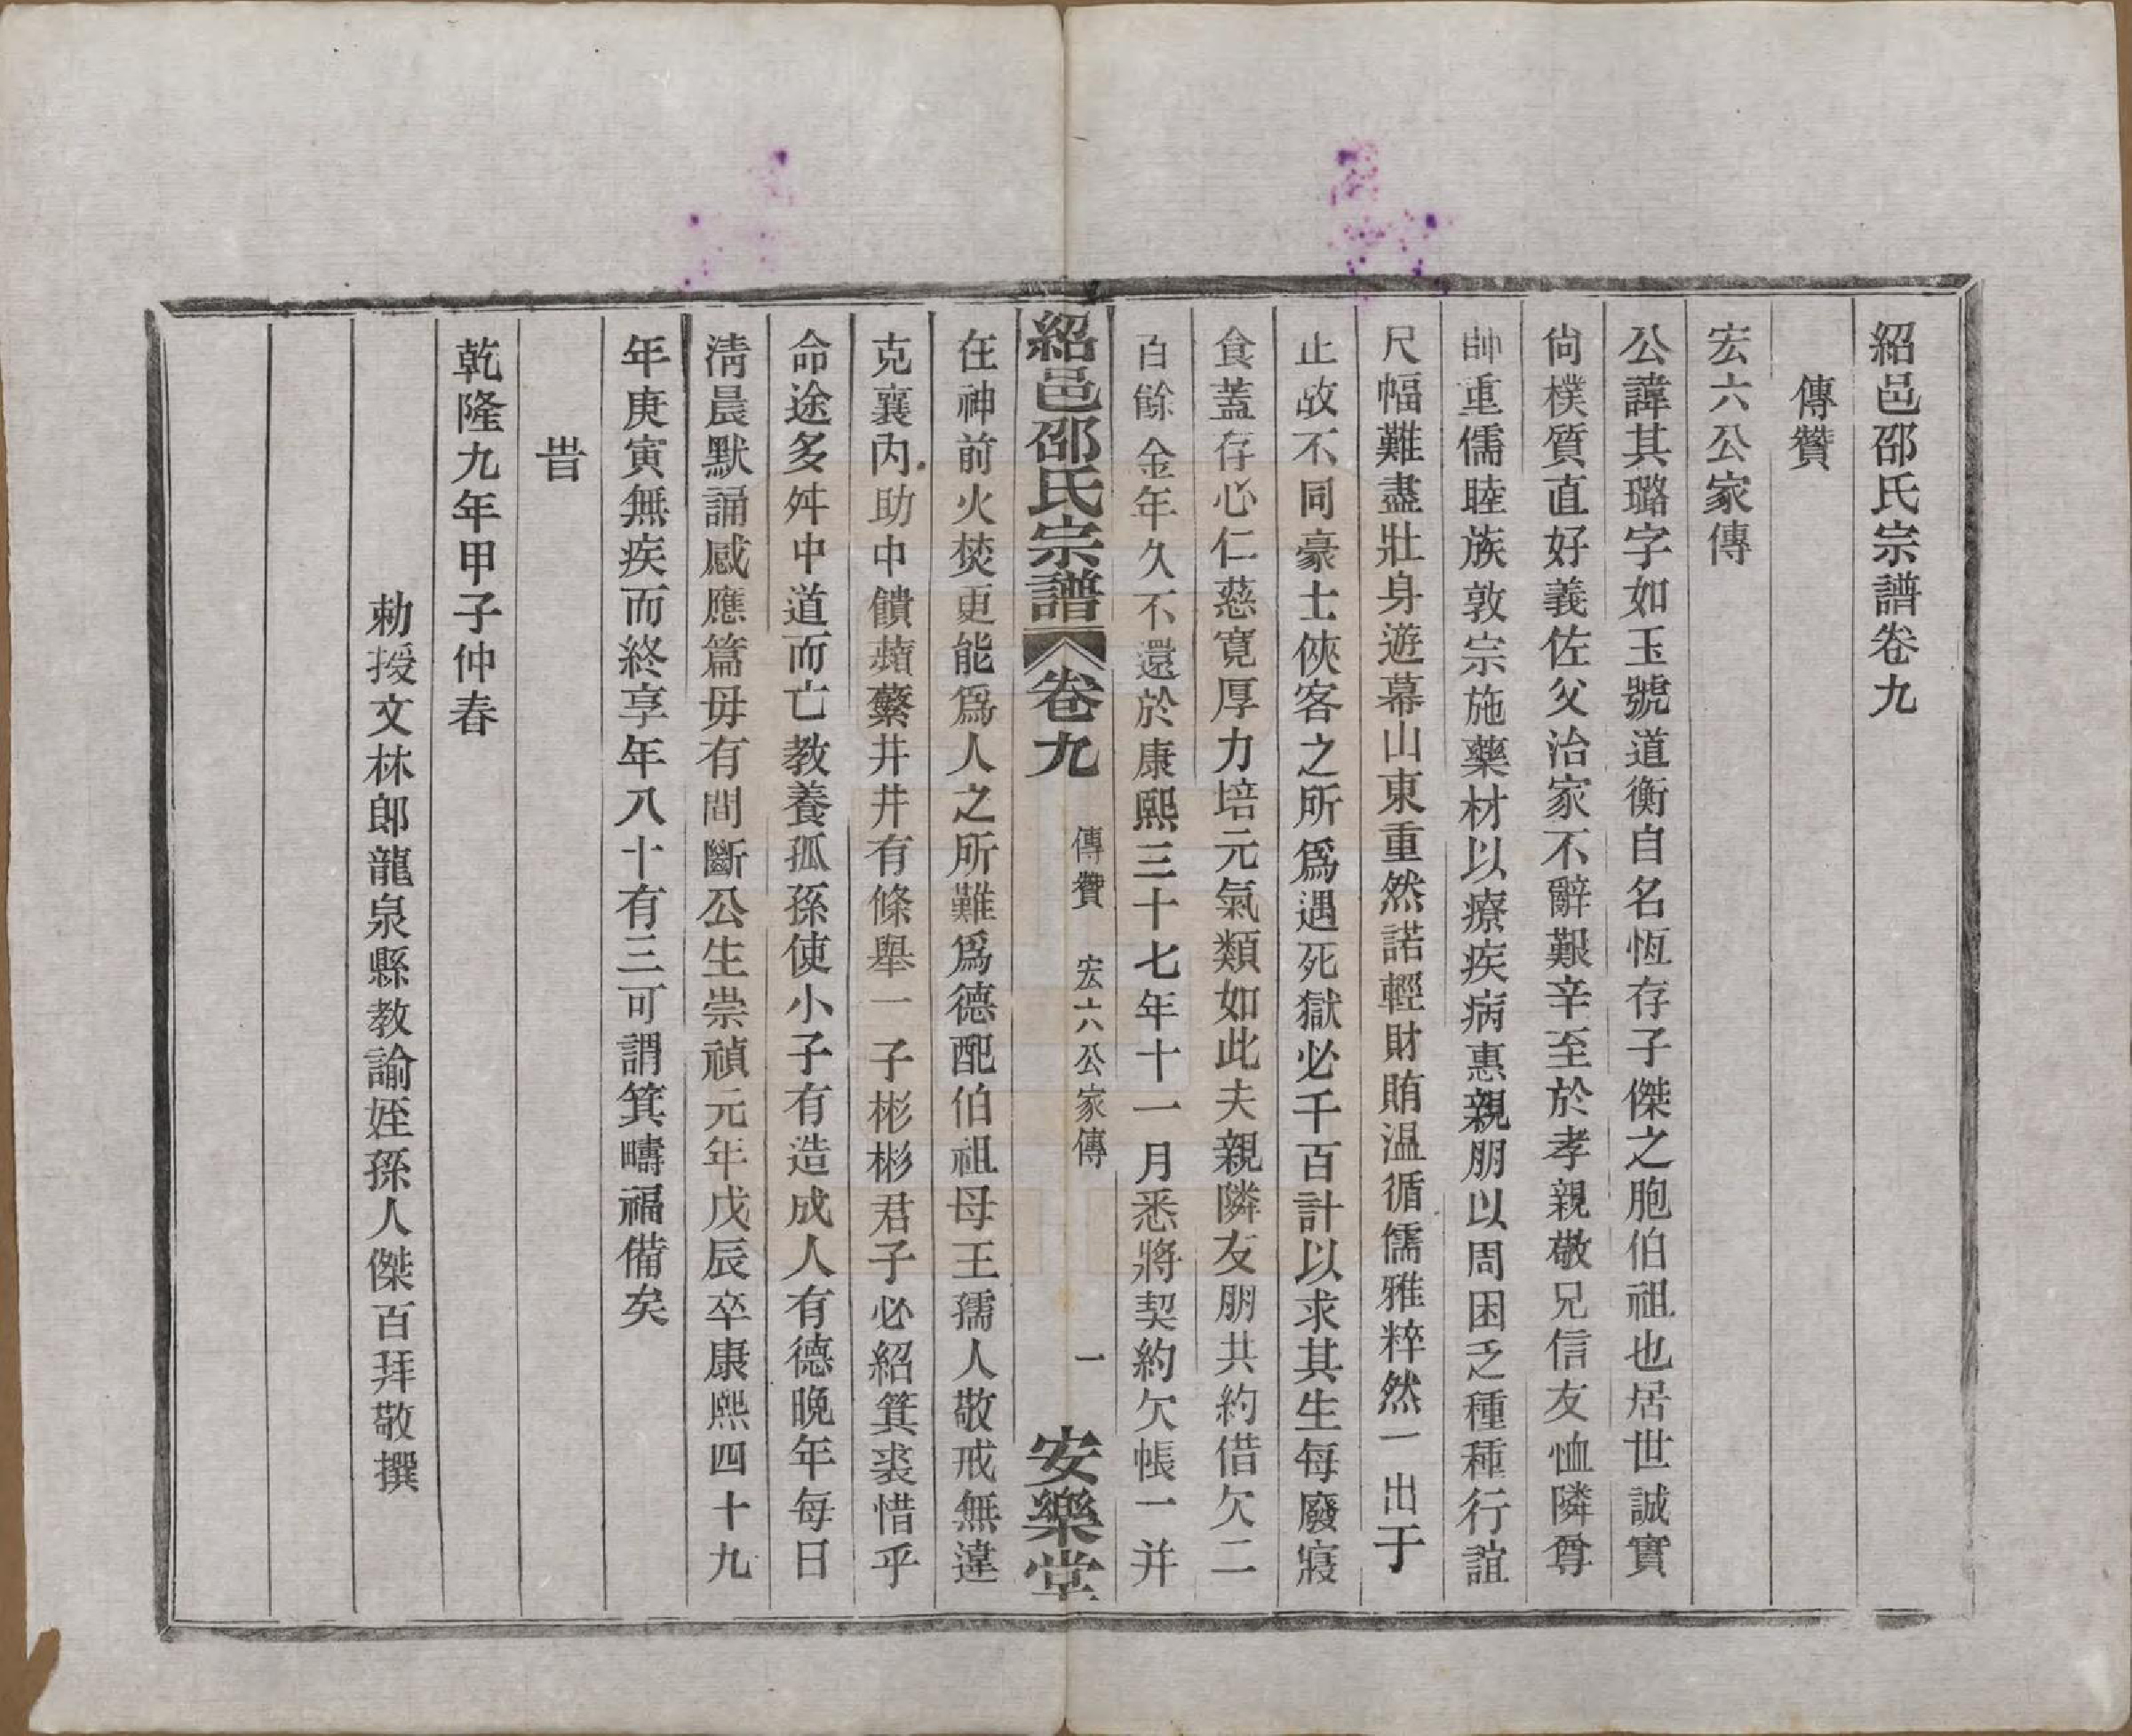 紹邑邵氏宗譜卷九
傳贊
宏六公家傳
公諱其璐字如玉號道衡自名恆存子傑之胞伯祖也居世誠實
尙樸質直好義佐父治家不辭艱辛至於孝親敬兄信友恤隣尊
帥重儒睦族敦宗施藥材以療疾病惠親朋以周困乏種種行誼
尺幅難盡壯身遊幕山東重然諾輕財賄温循儒雅粹然一出于
止故不同豪士俠客之所爲遇死獄必千百計以求其生每廢寢
食蓋存心仁慈寛厚力培元氣類如此夫親隣友朋共約借欠二
百餘金年久不還於康熙三十七年十一月悉將契約欠帳一并
紹邑邵氏宗譜 卷九 傳贊 宏六公家傳 一 安樂堂
在神前火焚更能爲人之所難爲德配伯祖母王孺人敬戒無違
克襄內助中饋蘋蘩井井有條舉一子彬彬君子必紹箕裘惜乎
命途多舛中道而亡教養孤孫使小子有造成人有德晚年每日
淸晨默誦感應篇毋有間斷公生崇禎元年戊辰卒康熙四十九
年庚寅無疾而終享年八十有三可謂箕疇福備矣
旹
乾隆九年甲子仲春
勅授文林郎龍泉縣教諭姪孫人傑百拜敬撰